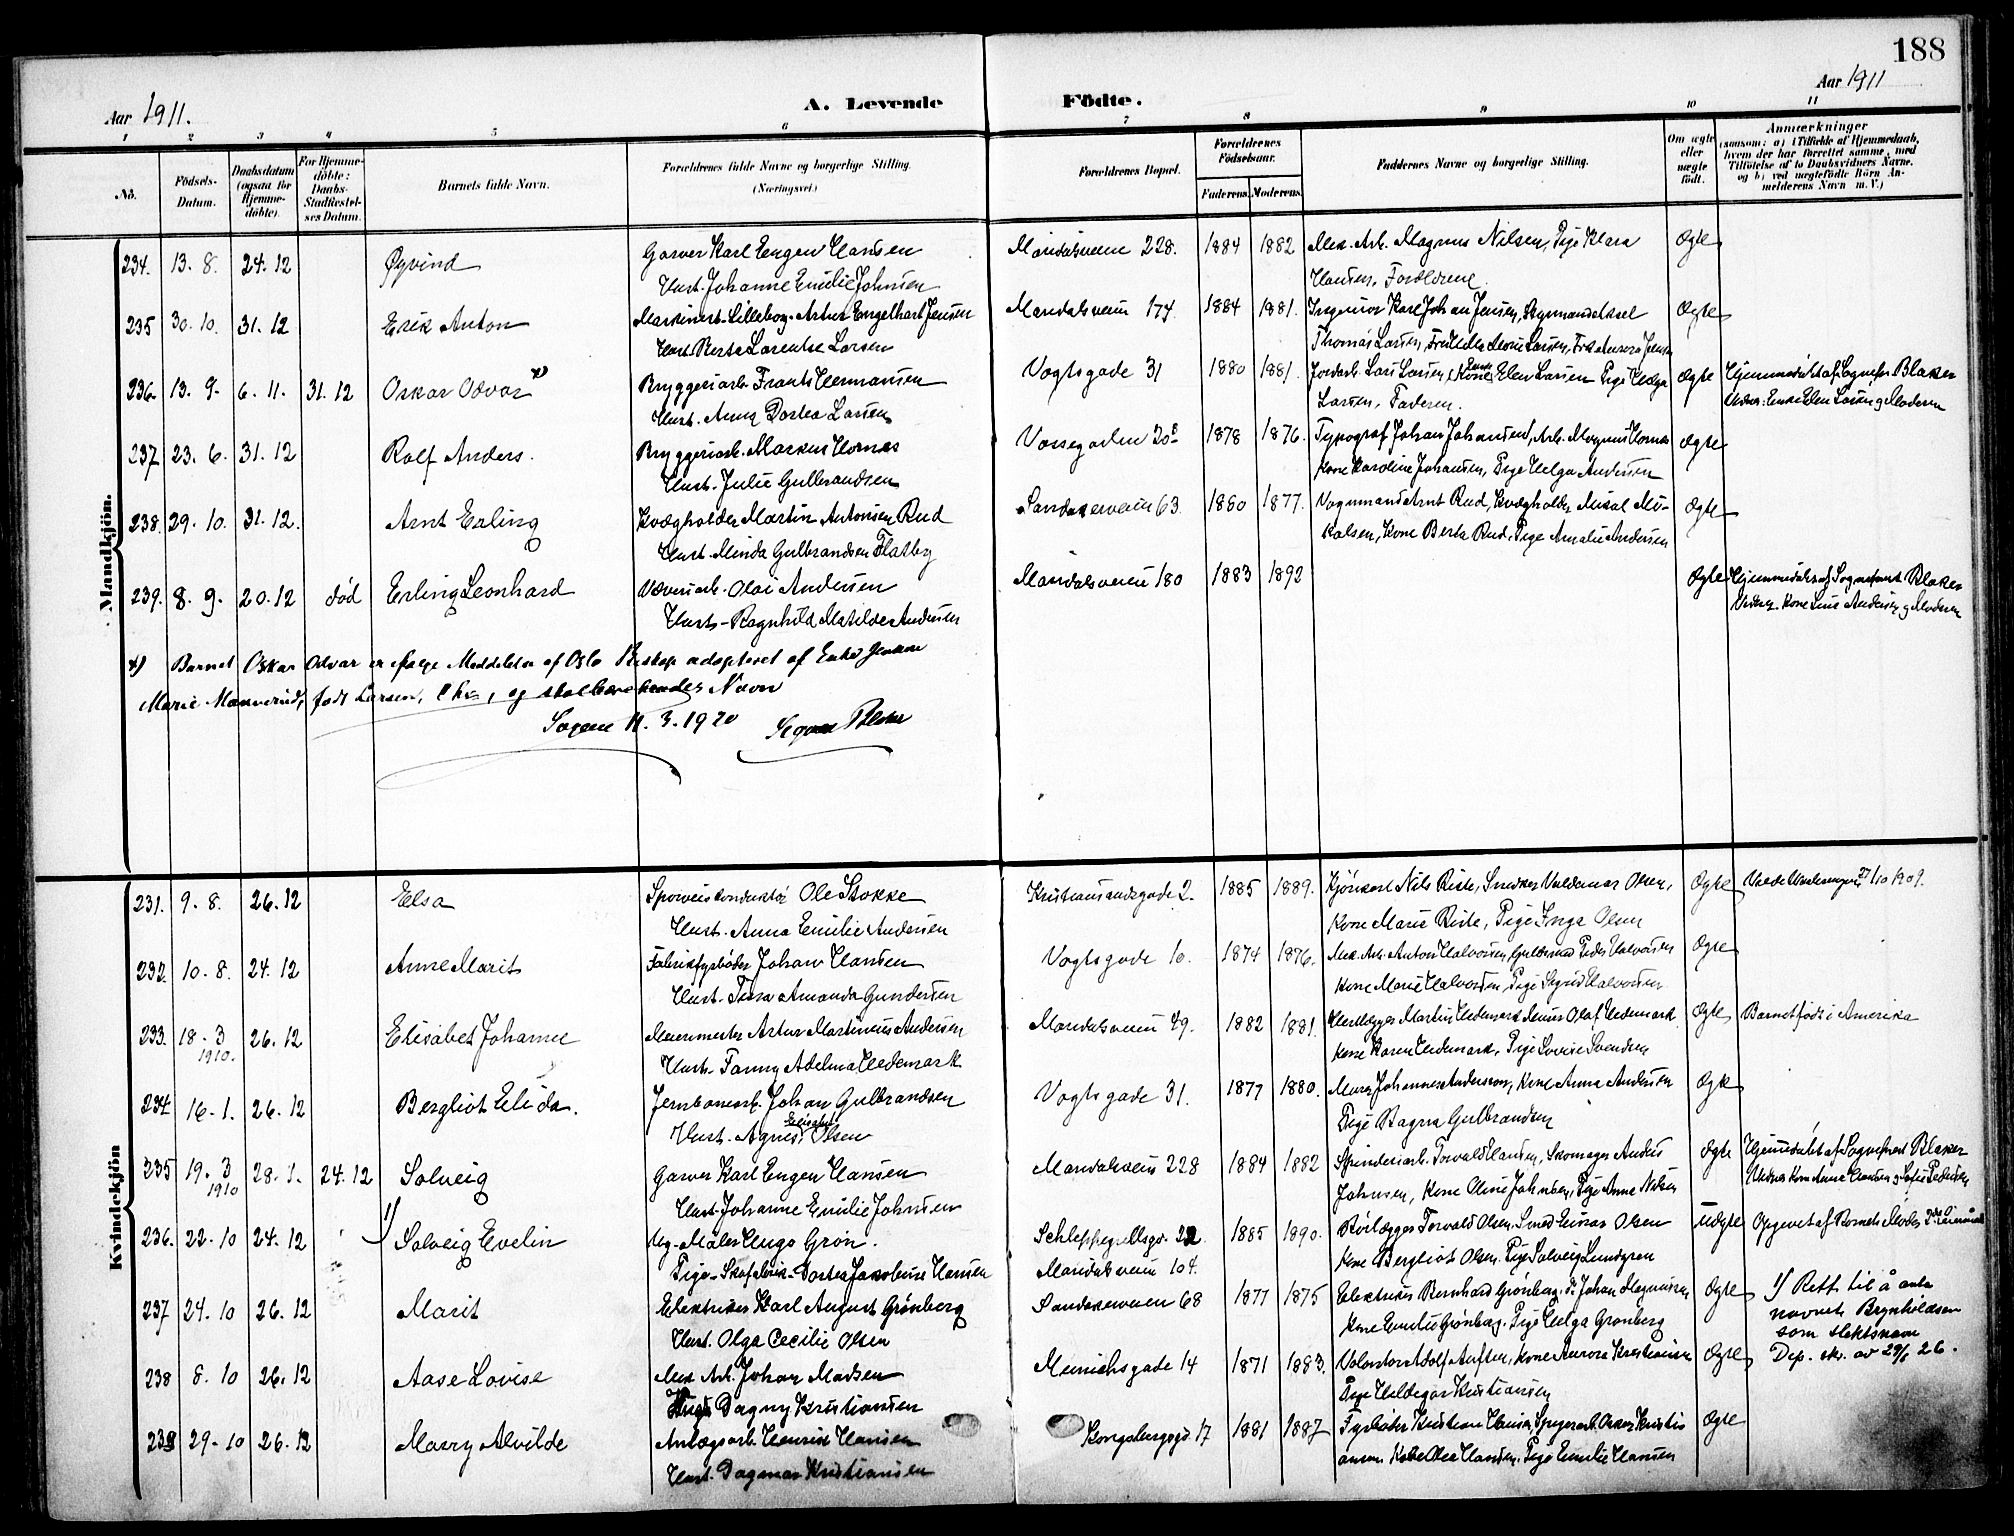 188
Aar 1911.
A. Levende
Födte.
Aar 1911
1 2 3 4 5 6 7 8 9 10 11
No. Födsels-Datum. Daabsdatum (ogsaa for Hjemme-döbte). For Hjemme-döbte: Daabs-Stadfæstel-ses Datum. Barnets fulde Navn. Forældrenes fulde Navne og borgerlige Stilling. (Næringsvei.) Forældrenes Bopæl. Forældrenes Födselsaar. Faderens. Moderens. Faddernes Navne og borgerlige Stilling. Om ægte eller uægte født. Anmærkninger (saasom: a) i Tilfælde af Hjemmedaab, hvem der har forrettet samme, med Tilföielse af to Daabsvidners Navne, og b) ved uægtefödte Börn An-melderens Navn m. V.)
Mandkjön.
234. 13. 8. 24. 12 Øyvind Garver Karl Eugen Hansen Mandalsveien 228. 1884 1882 Mek. Arb. Magnus Nilsen, Pige Klara Ægte
Hust. Johanne Emilie Johnsen Hansen, Forældrene
235 30. 10. 31. 12 Erik Anton Maskinist Artur Engelhart Jensen Mandalsveien 174 1884 1881. Ingeniør Karl Johan Jensen, Aksel Ægte
Hust. Berta Larentse Larsen Thomas Larsen,
236. 13. 9. 6. 11. 31. 12 Oskar Odvar x) Bryggeriarb. Frants Hermansen Vogtsgade 31 1880 1881. Jordarb. Lars Larsen, Enke Elen Larsen Pige Helga Ægte Hjemmedøbt af Sognepr. Blaker
Hust. Anna Dortea Larsen Larsen, Faderen. Vidner: Enke Elen Larsen og Moderen
237 23. 6. 31. 12 Rolf Anders. Bryggeriarb. Markus Hornæs Vossegaden 20 1878 1876. Typograf Johan Johansen, Arb. Magnus Hornæs Ægte
Hust. Julie Gulbrandsen Kone Karoline Johansen, Pige Helga Andersen
238. 29. 10. 31. 12. Arnt Erling Kvægholder Martin Antonsen Rud Sandakerveien 63. 1860 1877. Vognmand Arnt Rud, Kvægholder Mikal Mi- Ægte
Hust. Minda Gulbrandsen Flatby kalsen, Kone Berta Rud, Pige Amalie Andersen
239. 8. 9. 20. 12 død Erling Leonhard Væveriarb. Olai Andersen Mandalsveien 180 1883 1892 Ægte Hjemmedøbt af Sogneprest Blaker
Hust. Ragnhild Matilde Andersen Vidner. Kone Line Andersen og Moderen
x) Barnet Oskar Odvar er ifølge Meddelelse af Oslo Biskop adopteret af Enke
Marie født Larsen, og skal bære hendes Navn
Sagene 11. 3. 1920
Kvindekjön
231. 9. 8. 26. 12 Elsa Sporveiskonduktør Ole Stokke Kristiansandsgade 2. 1885 1889. Kjørekarl Nils Riste, Snedker Valdemar Olsen, Ægte 27/10 1909.
Hust. Anna Emilie Andersen Kone Marie Riste, Pige Inga Olsen
232. 10. 8. 24. 12 Anne Marit Fabrikfyrbøder Johan Hansen Vogtsgade 10. 1874 1876. Mek. Arb. Anton Halvorsen, Peder Halvorsen Ægte
Hust. Amanda Gundersen Kone Marie Halvorsen, Pige Sigrid Halvorsen
233. 18. 3 26. 12 Elisabet Johanne Murmester Artur Martinius Andersen Mandalsveien 49. 1882 1881. Martin Hedemark, Olaf Hedemark Ægte Barnet født i Amerika
1910. Hust. Fanny Adelma Hedemark Kone Karen Hedemark, Pige Lovise Svendsen
234 16. 1. 26. 12 Bergliot Elida. Jernbanearb. Johan Gulbrandsen Vogtsgade 31. 1877 1880. Murer Johannes Andersson, Kone Anna Andersen Ægte
Hust. Agnes Elisabet Olsen Pige Ragna Gulbrandsen
235 19. 3 28. 1. 24. 12 Solveig Garver Karl Eugen Hansen Mandalsveien 228 1884 1882 Spinderiarb. Torvald Hansen, Skomager Anders Ægte Hjemmedøbt af Sogneprest Blaker
1910 Hust. Johanne Emilie Johnsen Johnsen, Kone Oline Johnsen, Pige Anne Nilsen
236. 22. 10 24. 12 1) Solveig Evelin Ug. Maler Hugo Grøn. Schleppegrellsgd. 22. 1885 1890. Torvald Olsen, Smed Einar Olsen uægte Opgivet af Barnets Moder
Pige Skofabrik. Dortea Jakobine Hansen Mandalsveien 104. Kone Bergliot Olsen, Pige Solveig Lundgren
237 24. 10 26. 12 Marit Elektriker Karl August Grønberg Sandakerveien 68 1877 1875 Elektriker Bernhard Grønberg, Johan Magnussen Ægte 1) Rett til å anta
Hust. Olga Cecilie Olsen Kone Emilie Grønberg, Pige Helga Grønberg navnet Brynhildsen
som slektsnavn
238 8. 10 26. 12 Aase Lovise Mek. Arb. Johan Madsen Munichsgade 14 1871 1883. Kone Aurora Kristiansen Ægte Dep. skr. av 29/1 26.
Hust. Dagny Kristiansen Pige Hildegar Kristiansen
239 29. 10 26. 12 Marry Alvilde Anlægsarb. Henrik Hansen Kongsbergsgd. 17 1881 1887 Fyrbøter Kristian Hansen, Oskar Kristi Ægte
Hust. Dagmar Kristiansen ansen, Pige Emilie Hansen